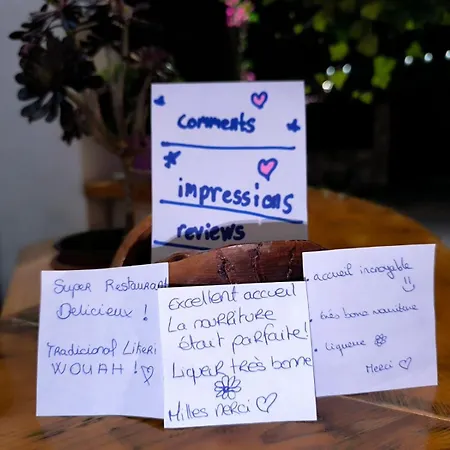 comments
impressions
reviews
Super Restaurant
Delicieux !
Tradicional Likeri
WOUAH !
Excellent accueil
La nourriture
était parfaite!
Liqueur très bonne
Milles merci
. accueil incroyable
. très bonne nourriture
. Liqueur
Merci